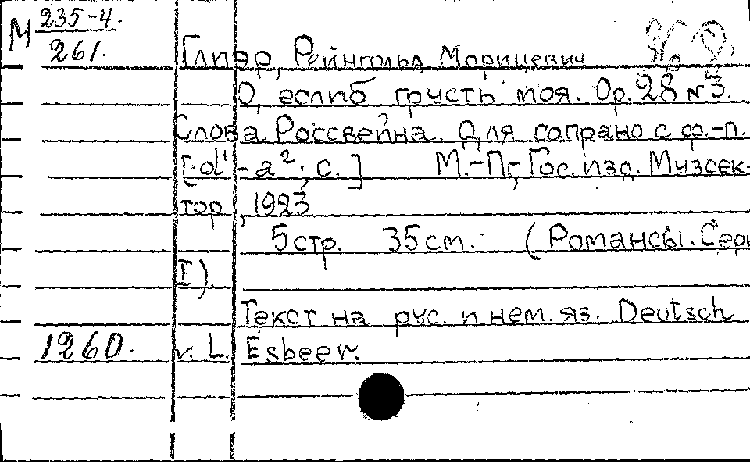 М 235-4.
261.
Глиэр, Рейнгольд Морицевич
О, еслиб грусть моя. Op. 28 №3.
Слова Россвейна. Для сопрано с ф.-п.
[d¹-a²; c.] М.-П., Гос. изд. Музсек-
тор, 1923
5 стр. 35 см. (Романсы. Сери
I).
Текст на рус. и нем. яз. Deutsch
1260. v. L. Esbeer.